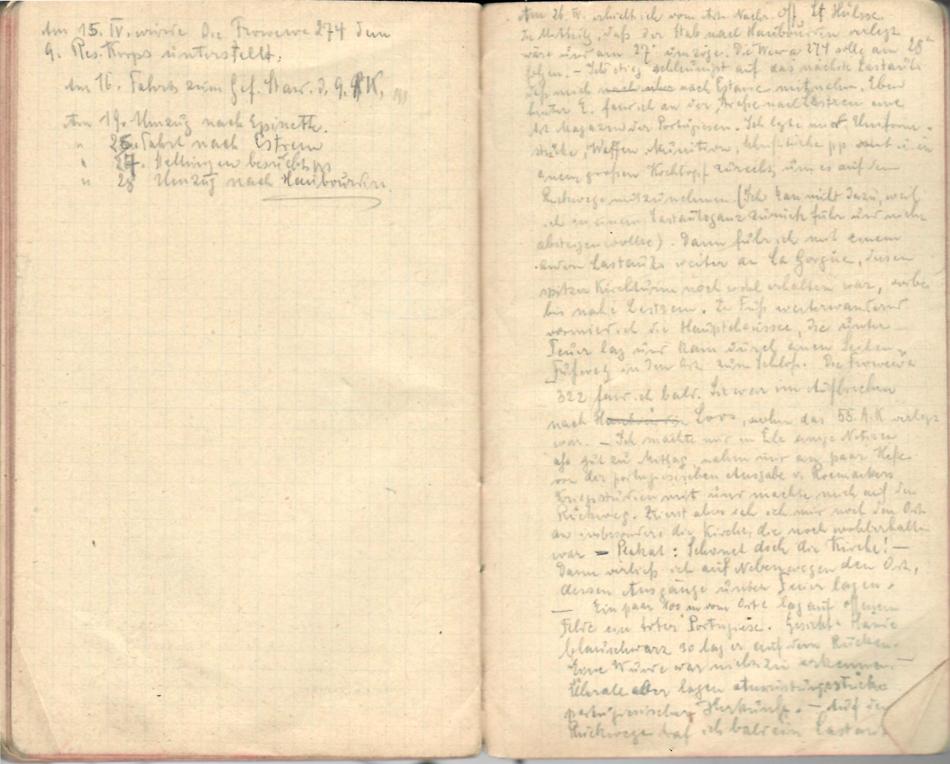 Am 15. IV. wurde die Frowewa 274 dem
9. Res. Korps unterstellt.
Am 16. Fahrt zum Gef. Staw. d. 9. RK.
Am 19. Umzug nach Epineth.
" 25. Fahrt nach Estrem
" 27. Dellingen besucht pp
" 28 Umzug nach Haubourdin.
Am 26. IV. erhielt ich vom Nachr. Off. Lt Hülsse
die Mitteilg, daß der Stab nach Haubourdin verlegt
wäre und am 27. umzöge. Die Wewa 274 solle am 28
folgen. – Ich stieg schleunigst auf das nächste Lastauto
ließ mich nach Estaires mitnehmen. Eben
hinter E. fand ich an der Straße nach Lestrem eine
Art Magazin der Portugiesen. Ich legte mir Uniform-
stücke, Waffen, Munition, pp samt
einem großen Kochtopf zurecht, um es auf dem
Rückwege mitzunehmen. (Ich kam nicht dazu, weil
ich in einem Lastauto ganz zurück fuhr und nicht
absteigen wollte). Dann fuhr ich mit einem
andern Lastauto weiter an La Gorgue, dessen
spitzer Kirchturm noch wohl erhalten war, vorbei
bis nahe Lestrem. Zu Fuß weiterwandernd
vermied ich die Hauptchaussee, die unter
Feuer lag und kam durch einen Seiten-
Fußweg in den Ort zum Schloß. Die Frowewa
322 fand ich bald. Sie war im Aufbrechen
nach Loos, wohin das 55. A.K verlegt
war. – Ich machte mir in Eile einige Notizen
aß gut zu Mittag, nahm mir ein paar Hefte
von der portugiesischen Ausgabe v. Raemaekers
Kriegsstudien mit und machte mich auf den
Rückweg. Zuerst aber sah ich mir noch den Ort
an insbesondere die Kirche, die noch wohlerhalten
war – Plakat: Schonet doch die Kirche! –
Dann verließ ich auf Nebenwegen den Ort,
dessen Ausgänge unter Feuer lagen.
– Ein paar 100 m vom Orte lag auf offenem
Felde ein toter Portugiese. Gesicht + Hände
blauschwarz so lag er auf dem Rücken.
Eine Wunde war nicht zu erkennen. –
Überall aber lagen Ausrüstungsstücke
portugiesischer Herkunft. – Auf dem
Rückwege traf ich bald ein Lastauto